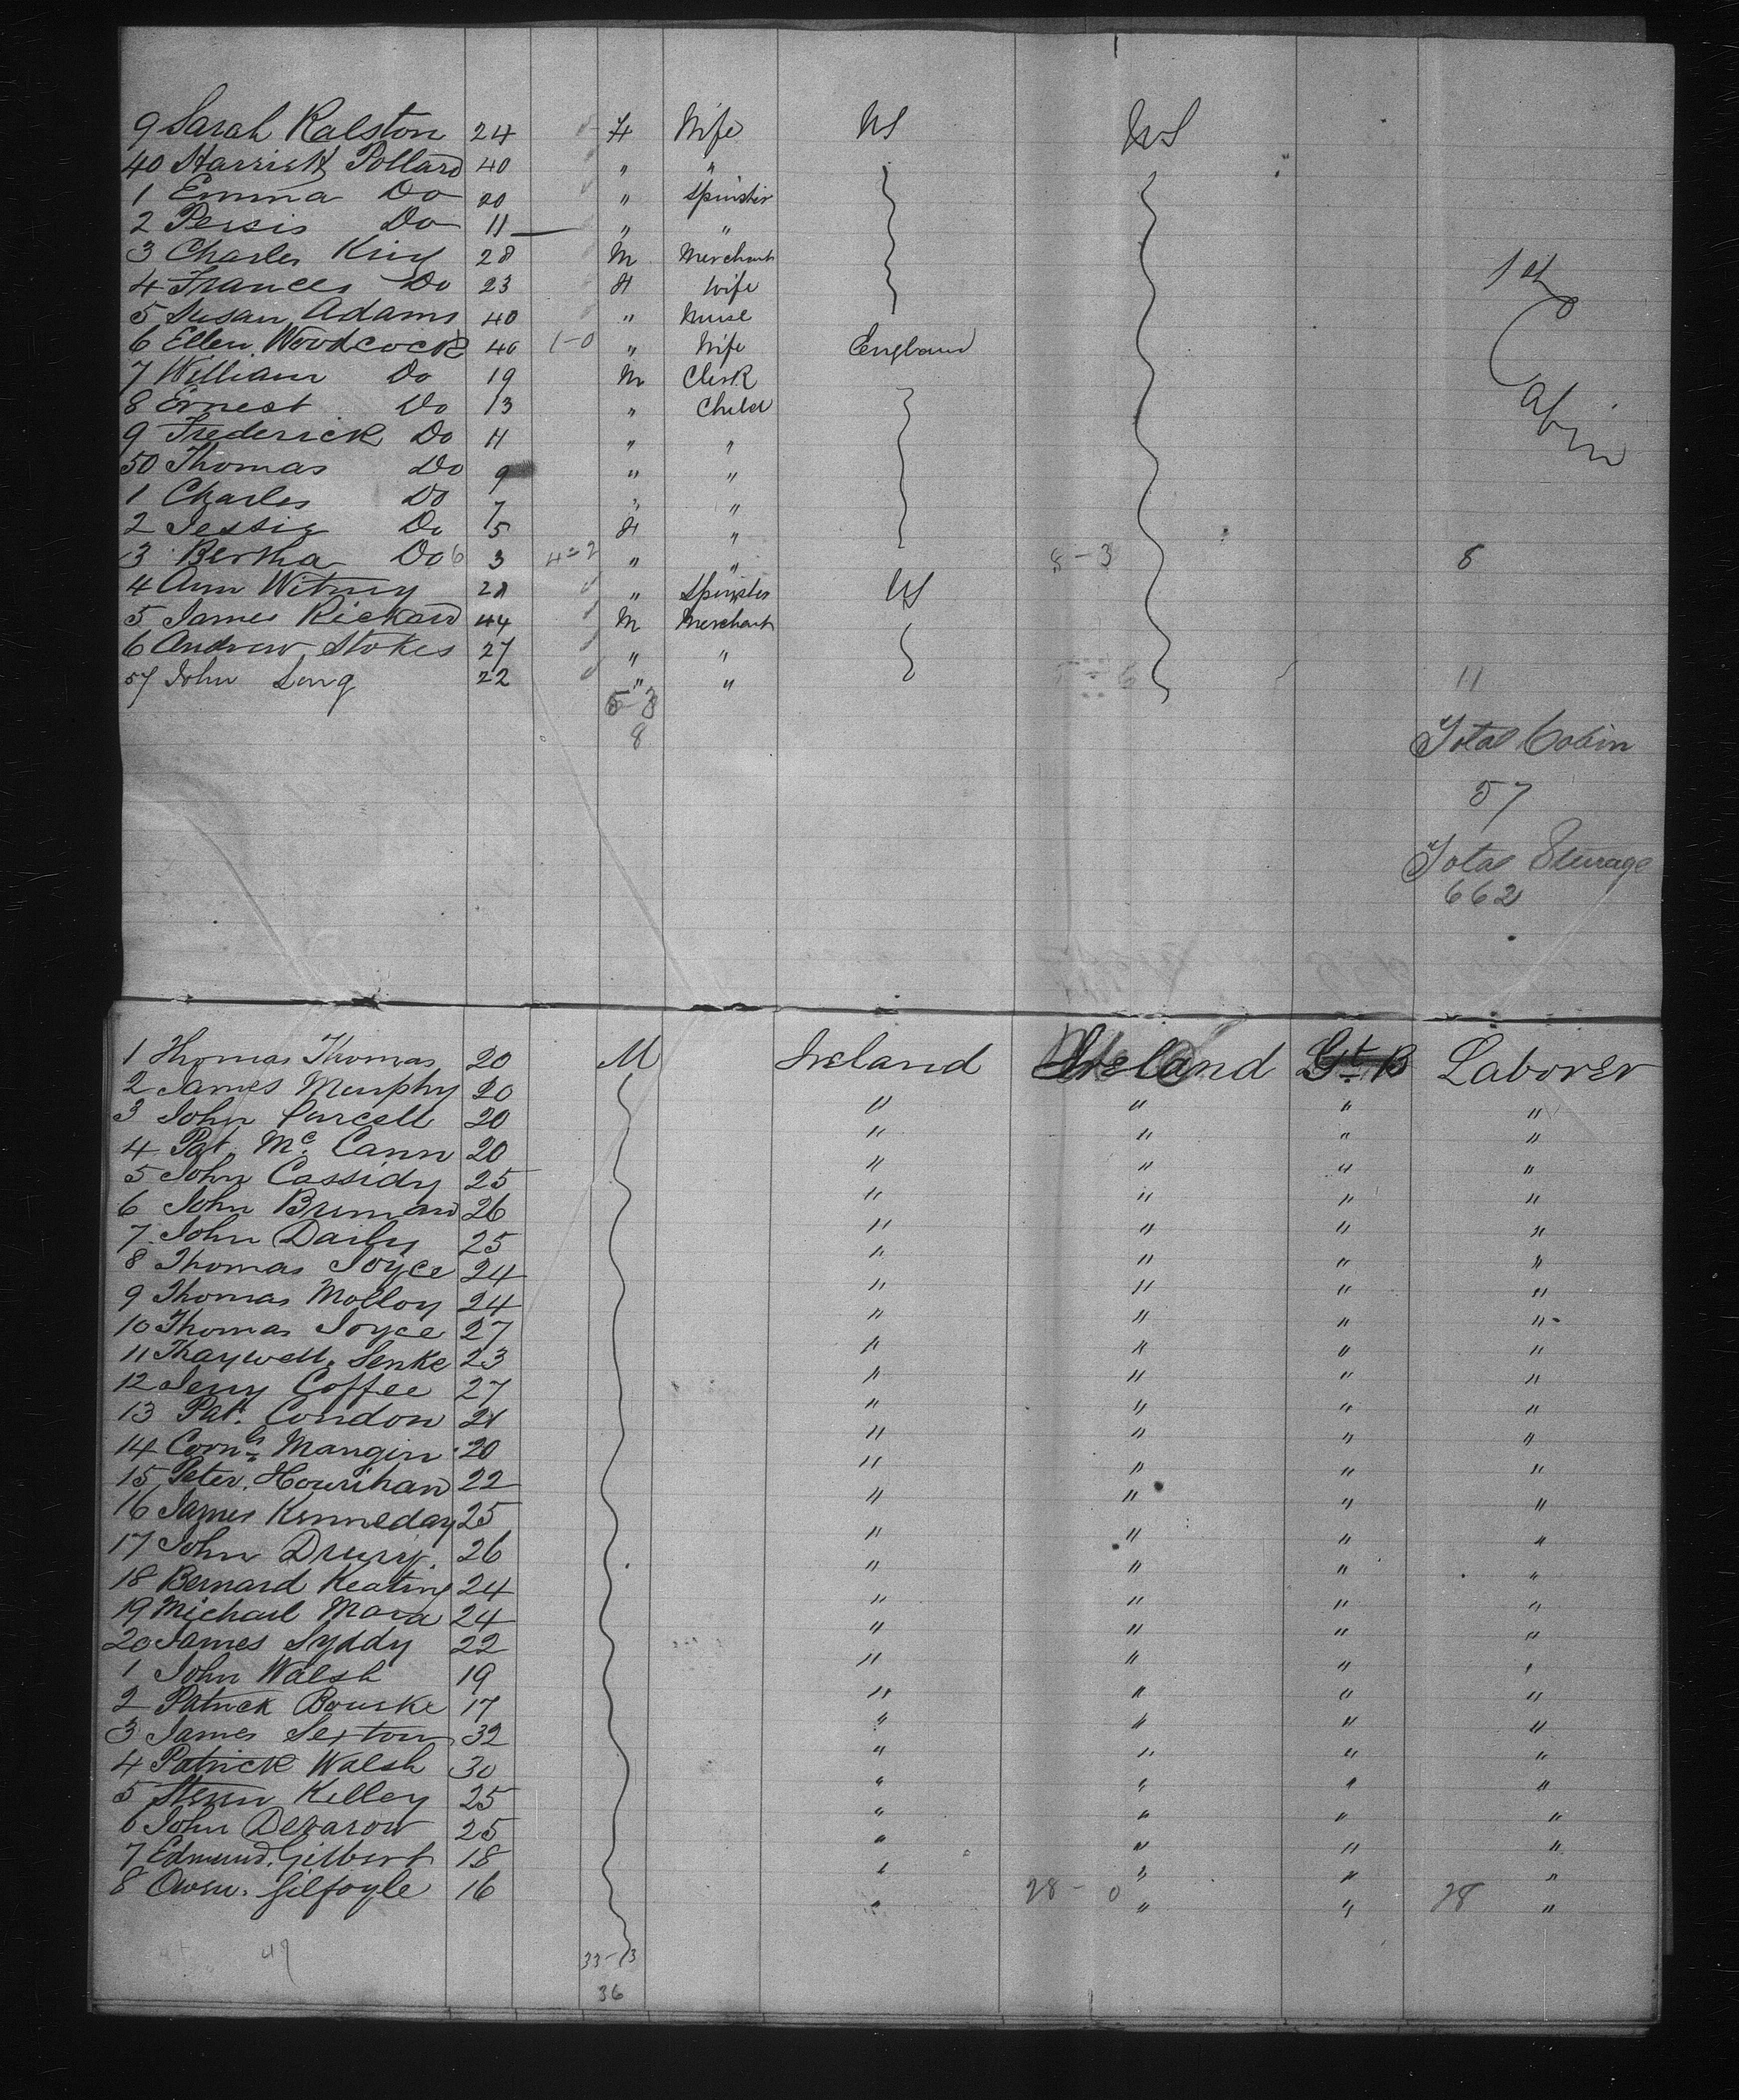 9 Sarah Ralston 24 F Wife US US
40 Harriett Pollard 40 " "
1 Emma Do 20 " Spinster
2 Persis Do 11 " "
3 Charles King 28 M Merchant
4 Frances Do 23 F Wife 1st
5 Susan Adams 40 " Nurse
6 Ellen Woodcock 40 1-0 " Wife England
7 William Do 19 M Clerk Cabin
8 Ernest Do 13 " Child
9 Frederick Do 11 " "
50 Thomas Do 9 " "
1 Charles Do 7 " "
2 Jessie Do 5 F "
3 Bertha Do 6 3 4-2 " " 8-3 8
4 Ann Witney 28 " Spinster US
5 James Rickard 44 M Merchant
6 Andrew Stokes 27 " "
57 John Long 22 " " 11
5-3
8
Total Cabin
57
Total Steerage
662
1 Thomas Thomas 20 M Ireland Ireland Gt. B Laborer
2 James Murphy 20 " " " "
3 John Purcell 20 " " " "
4 Pat. Mc. Cann 20 " " " "
5 John Cassidy 25 " " " "
6 John Brennan 26 " " " "
7 John Daily 25 " " " "
8 Thomas Joyce 24 " " " "
9 Thomas Molloy 24 " " " "
10 Thomas Joyce 27 " " " "
11 Senke 23 " " " "
12 Jerry Coffee 27 " " " "
13 Pat. Condon 21 " " " "
14 Corns. Mangin 20 " " " "
15 Peter Hourihan 22 " " " "
16 James Kenneday 25 " " " "
17 John Drury 26 " " " "
18 Bernard Keating 24 " " " "
19 Michael Mara 24 " " " "
20 James Lyddy 22 " " " "
1 John Walsh 19 " " " "
2 Patrick Bourke 17 " " " "
3 James Sexton 32 " " " "
4 Patrick Walsh 30 " " " "
5 Kelley 25 " " " "
6 John 25 " " " "
7 Edmund Gilbert 18 " " " "
8 Owen Gilfoyle 16 " 28-0 " " 28 "
49 33-13
36